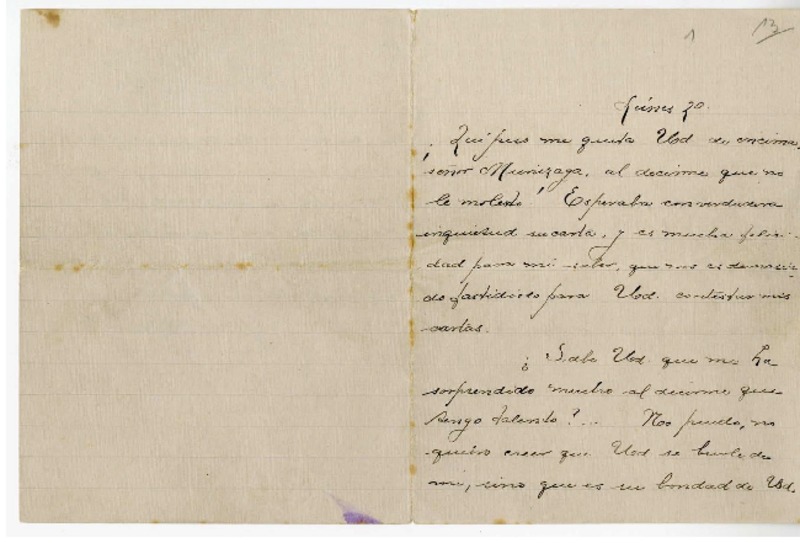 1 13
Lúnes 20.
¡Qué peso me quita Usd. de encima,
señor Munizaga, al decirme que no
le molesto! Esperaba con verdadera
inquietud su carta, y es mucha felici-
dad para mí saber, que no es demasia-
do fastidioso para Usd. contestar mis
cartas.
¿Sabe Usd. que me ha
sorprendido mucho al decirme que
tengo talento?... No puedo, no
quiero creer que Usd. se burle de
mí, sino que es su bondad de Usd.